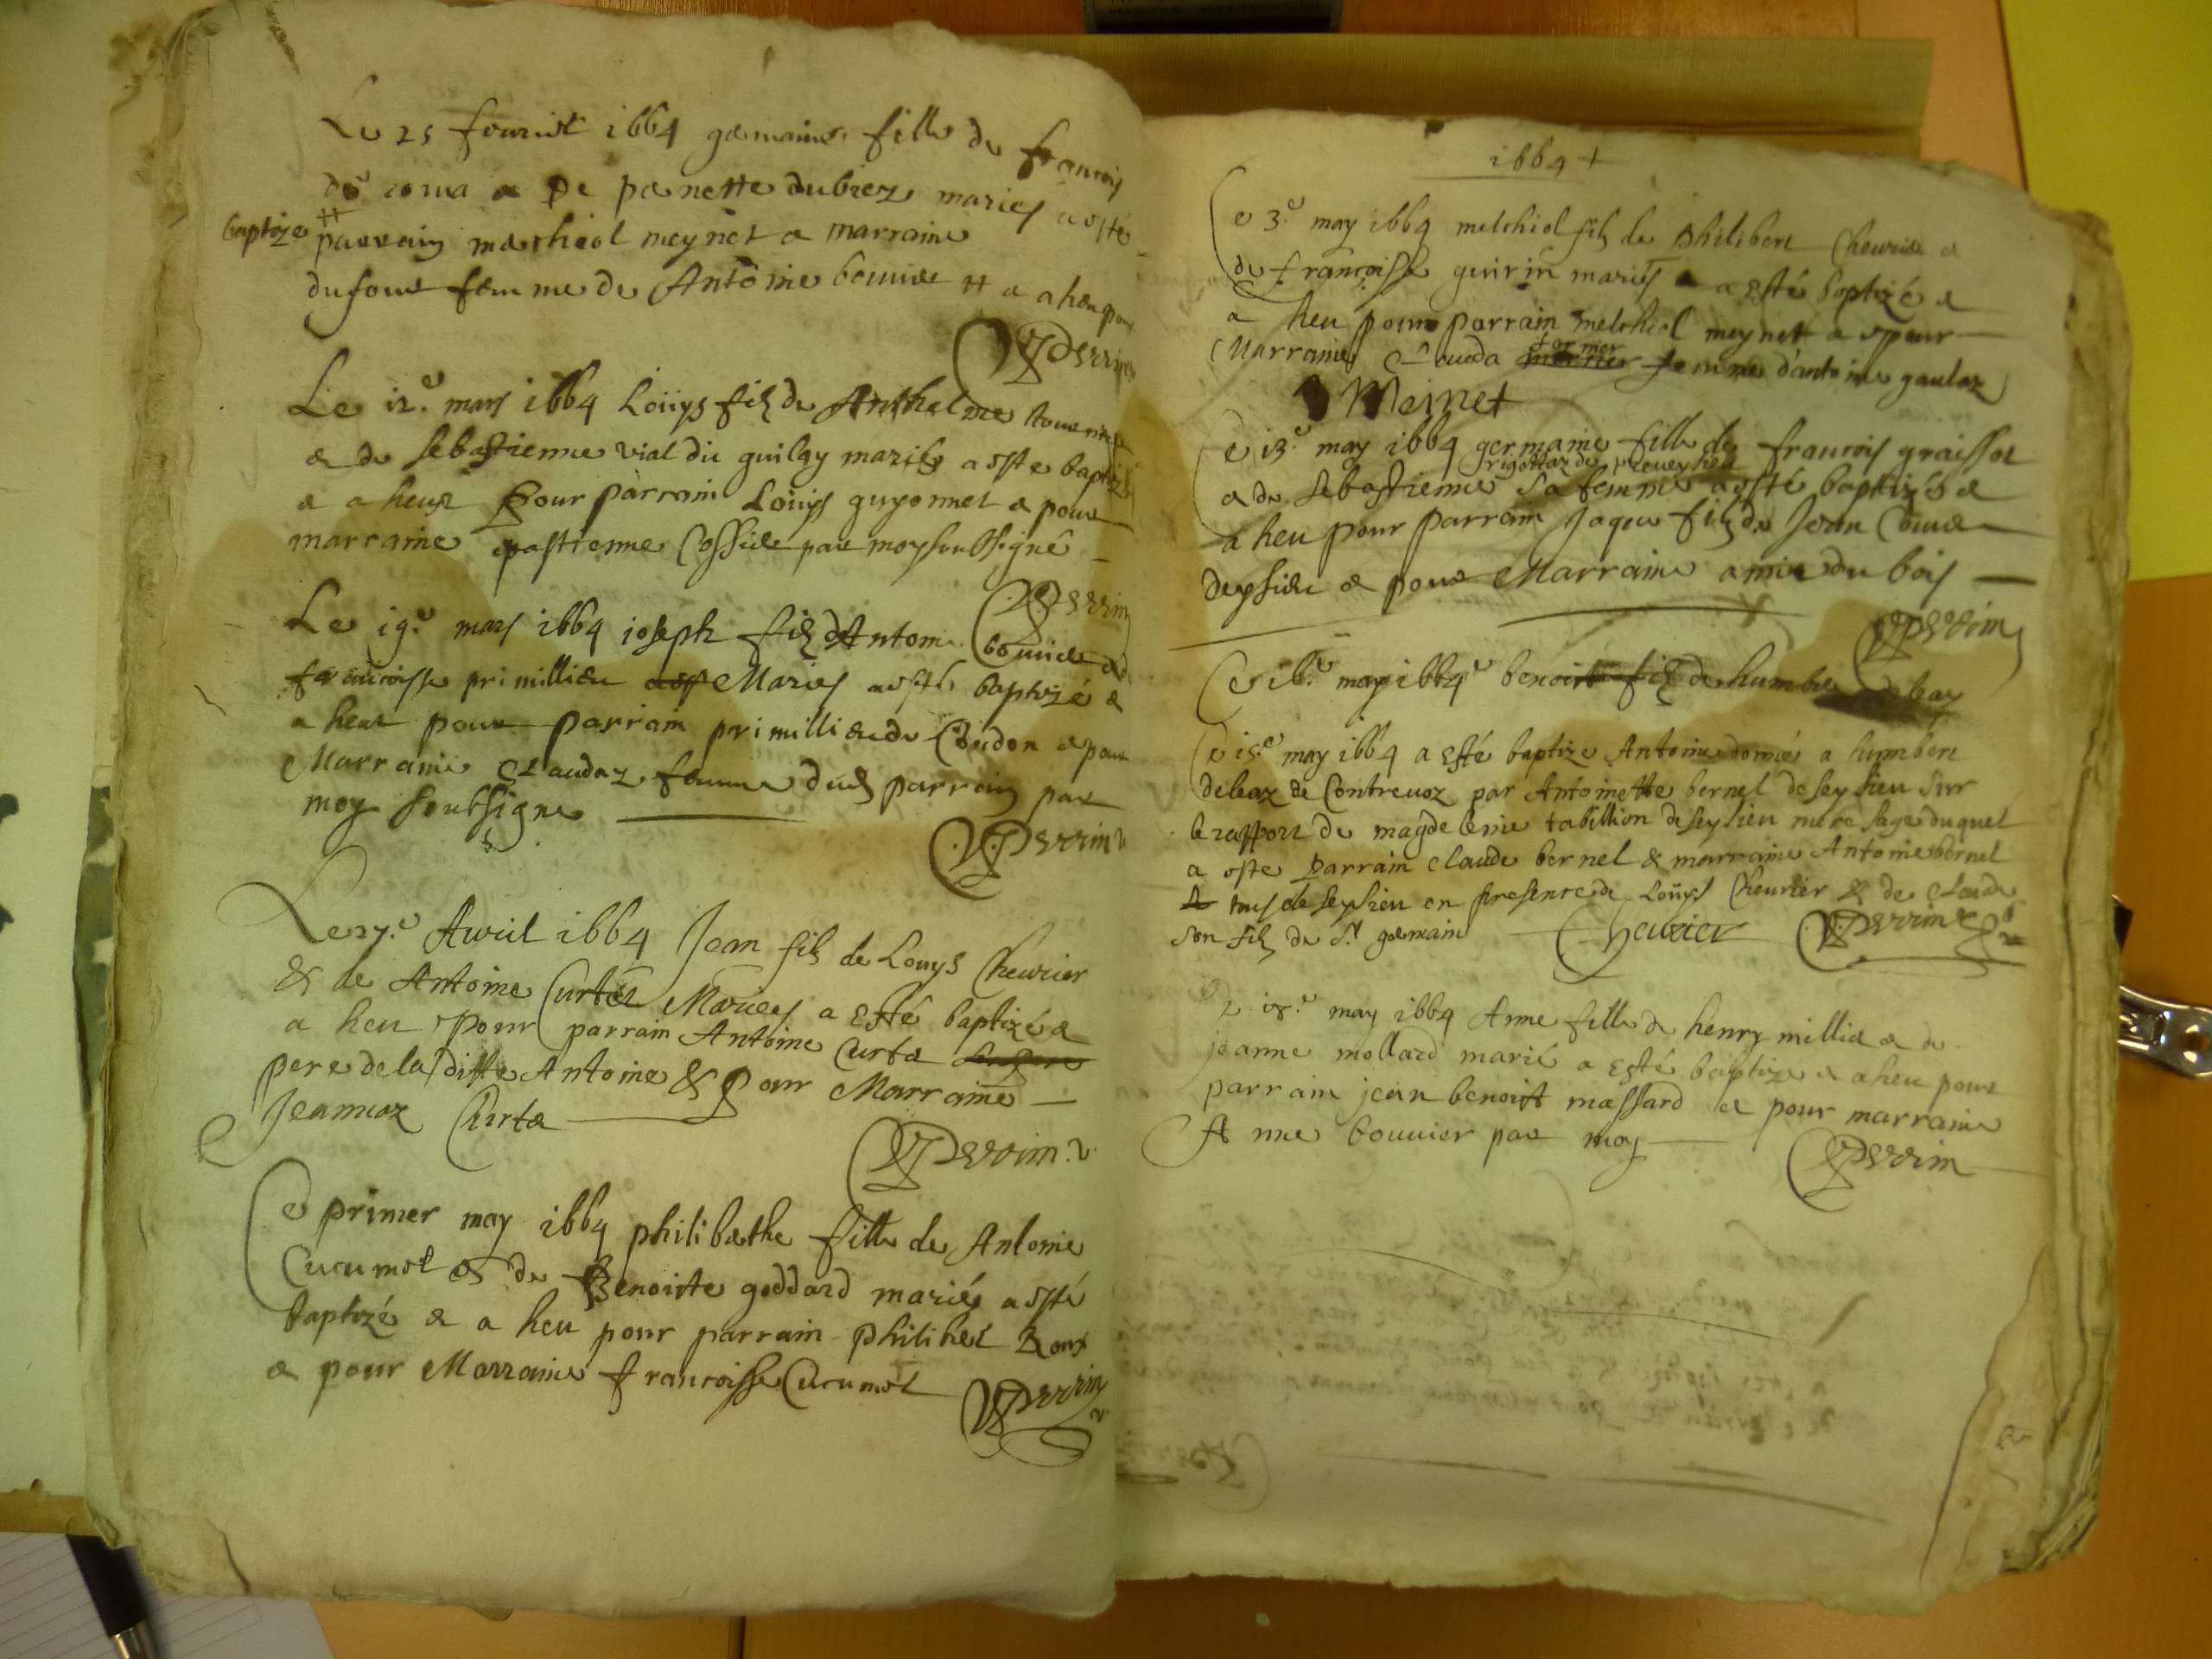 Le 25 feurier 1664 germaine fille de francois
de pernette dubiez maries a esté
baptize parrain merchiol meynet & marraine
dufour femme de Antoine bouuier # a a heu pour
VPerrin
Le 12.e mars 1664 Loüys filz de Anthelme
& de sebastienne vial du guilay mariés a este baptizé
& a heu pour parrain Loüys guyonnet & pour
marraine pastienne Cossier par moy soubsigné
VPerrin
Le 19.e mars 1664 ioseph filz dAntoine bouuier & de
francoisse primillieu Maries a esté baptizé &
a heu pour parrain primillieu de Condon & pour
Marraine Claudaz femme dud parrain par
moy soubsigne
VPerrin
Le 27.e Auril 1664 Jean filz de Louys Cheurier
& de Antoine Curtet Maries a Esté baptizé &
a heu pour parrain Antoine Curtet
pere de la ditte Antoine & pour Marraine
Jeannaz Curtet
VPerrin
Le primer may 1664 philiberthe fille de Antoine
Cucumot & de Benoitte goddard mariés a esté
baptizé & a heu pour parrain philibert Roux
& pour Marraine francoisse Cucumot
VPerrin
1664 +
Le 3.e may 1664 melchiol filz de Philibert Cheurier &
de francoisse guirin mariés a Esté baptizé &
a heu pour parrain melchiol meynet & pour
Marraine Clauda femme d'antoine gaulaz
Meinet
Le 13.e may 1664 germaine fille de francois graissot
rigottaz de preueysieu
& de sebastienne sa femme a esté baptizée &
a heu pour parrain Jaque filz de Jean Couuer
deysieu & pour Marraine amie du bois
VPerrin
Le 16.e may 1664 benoist filz de humbert
Le 15.e may 1664 a Esté baptize Antoine donné a humbert
deleaz de Contreuoz par Antoinette bernel de seysieu sur
le rapport de magdeleine tabillion de seysieu mere sage duquel
a este parrain claude bernel & marraine Antoine bernel
tous de seysieu en presence de Loüys Cheurier & de Claude
son filz de St germain
Cheurier VPerrin
Le 18.e may 1664 Anne fille de henry millier & de
jeanne mollard marié a Esté baptize & a heu pour
parrain jean benoist massard & pour marraine
Anne bouuier par moy
VPerrin